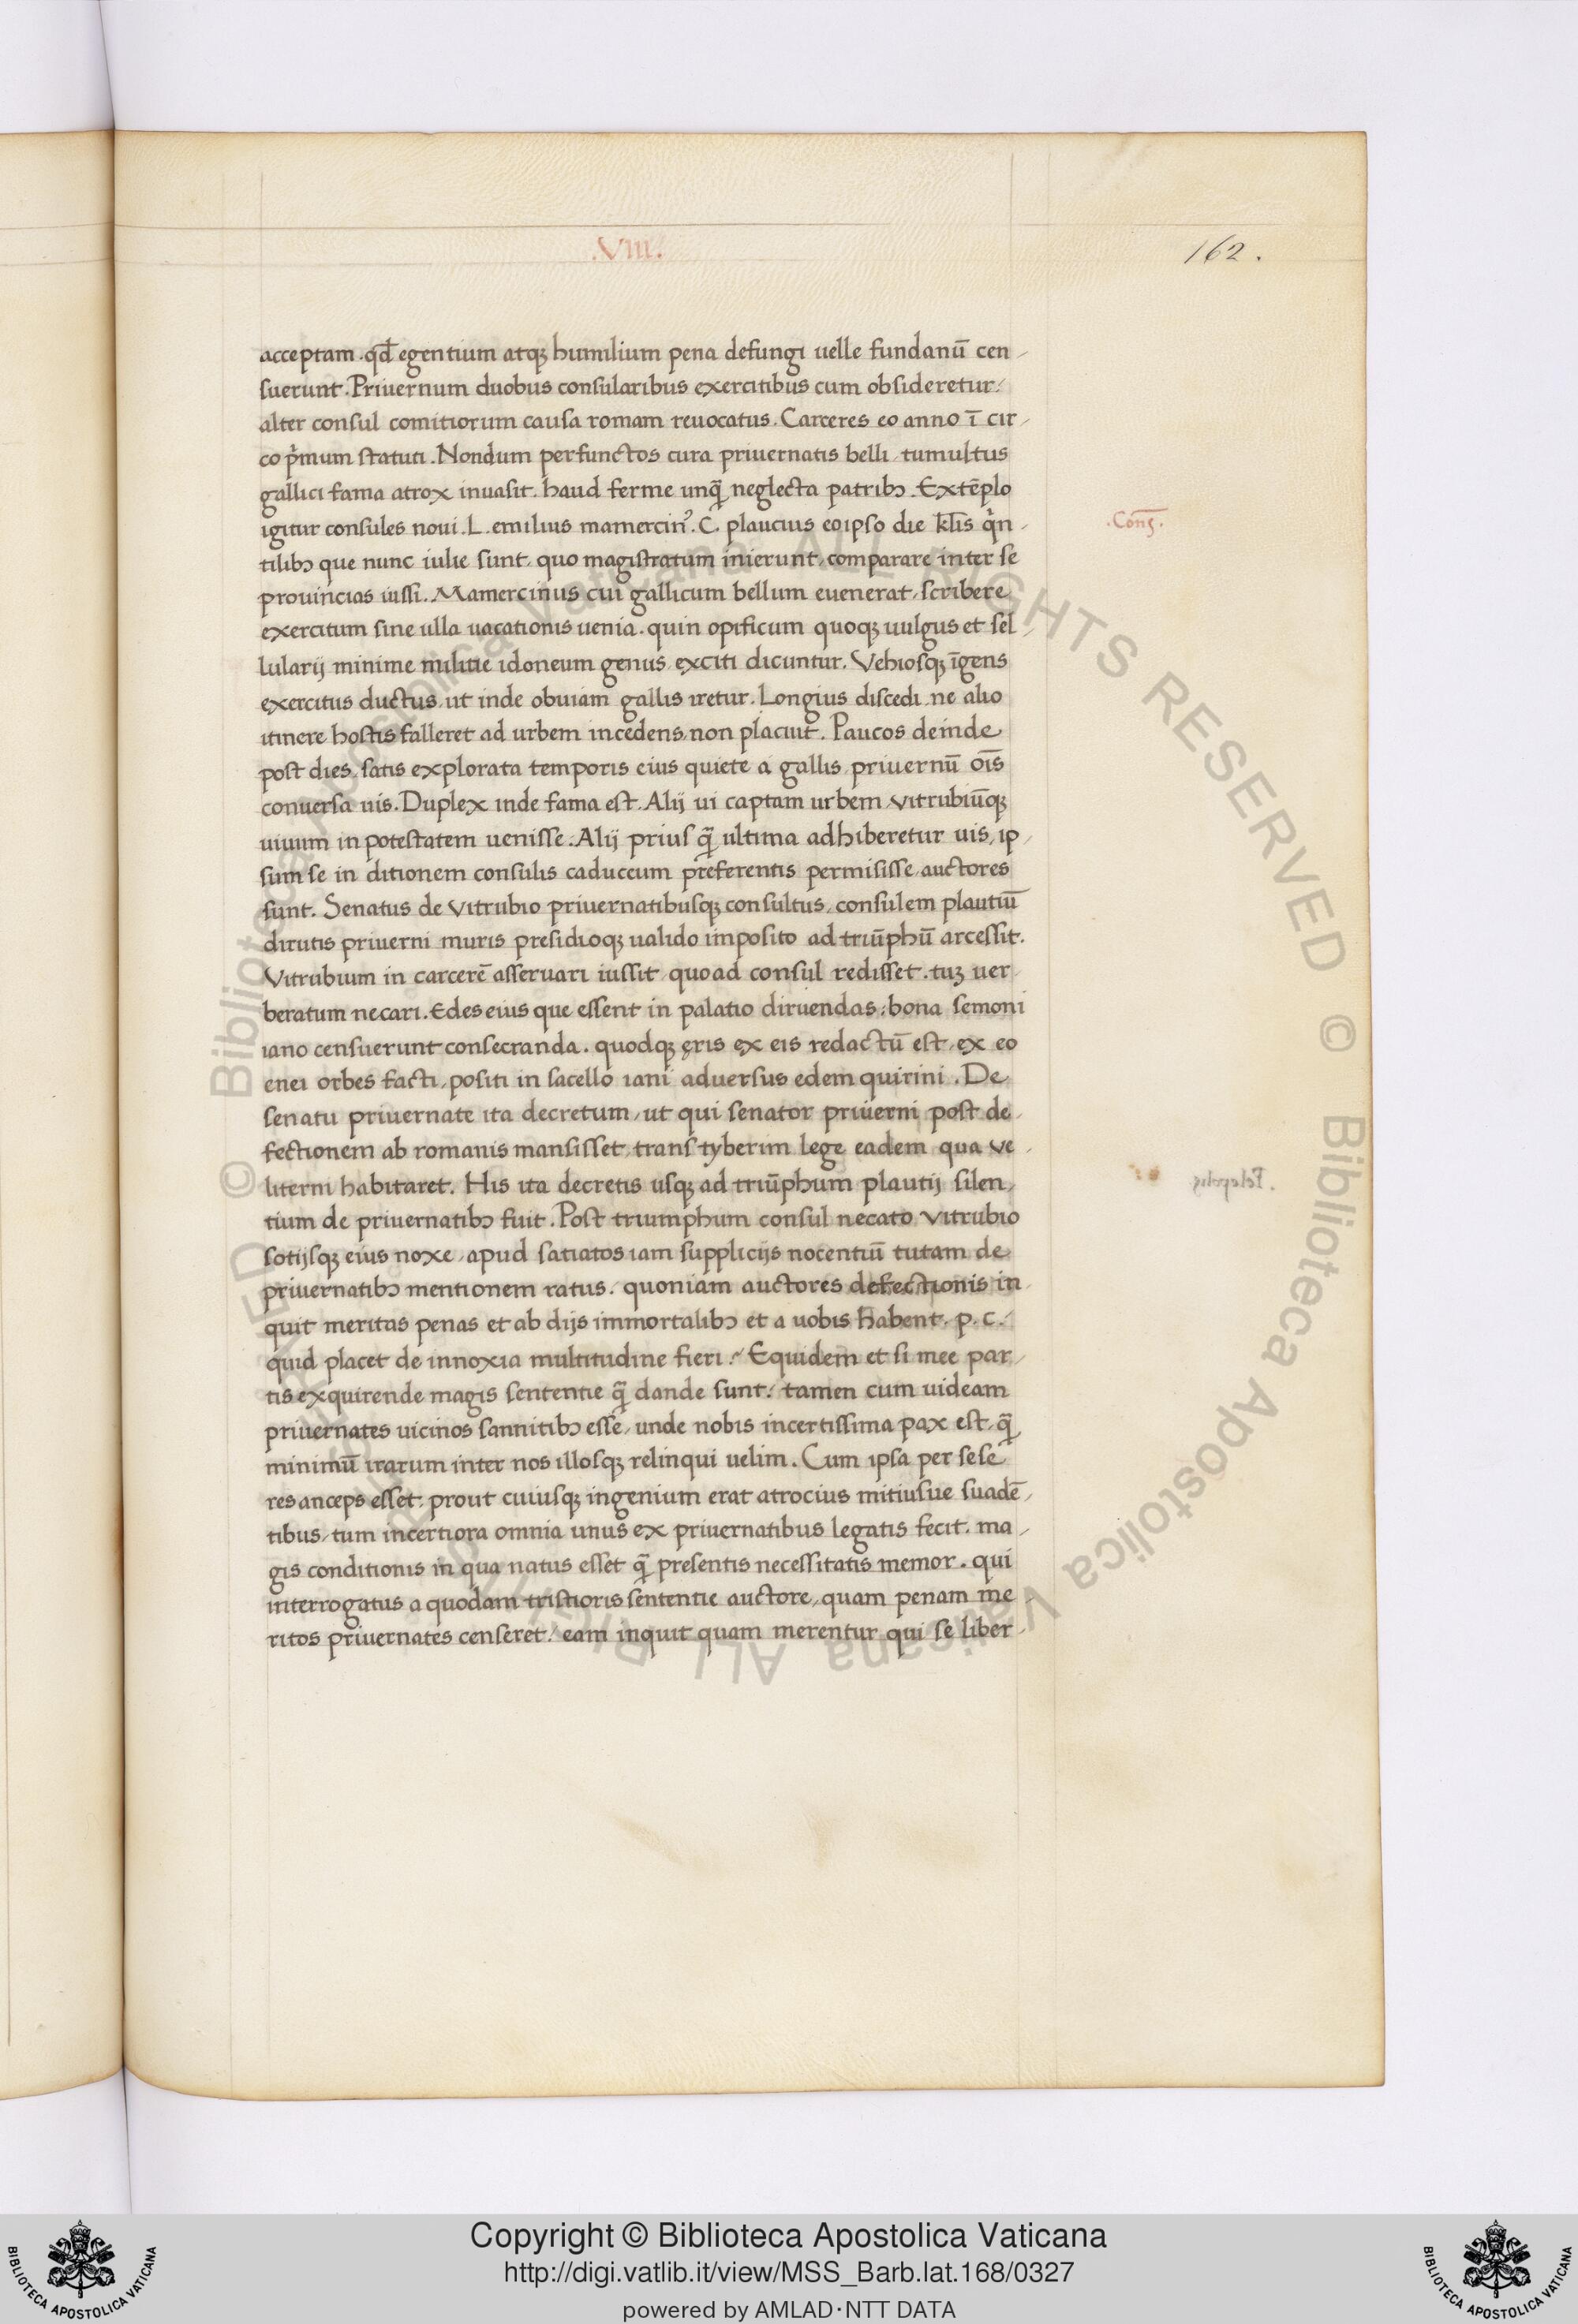 .VIII.
162.
acceptam . qđ egentium atqꝫ humilium pena defungi uelle fundanū cen-
suerunt. Priuernum duobus consularibus exercitibus cum obsideretur:
alter consul comitiorum causa romam reuocatus. Carceres eo anno ī cir-
co p̄mum statuti. Nondum perfunctos cura priuernatis belli, tumultus
gallici fama atrox inuasit. haud ferme unq̄ neglecta patribꝫ. Extēplo
igitur consules noui. L. emilius mamercinꝰ. C. plautius eo ipso die kl̄is q̄n-
.Conꝭ.
tilibꝫ que nunc iulie sunt, quo magistratum inierunt, comparare inter se
prouincias iussi. Mamercinus cui gallicum bellum euenerat, scribere
exercitum sine ulla uacationis uenia. quin opificum quoqꝫ uulgus et sel-
lularij minime militie idoneum genus, exciti dicuntur. Vehiosqꝫ īgens
exercitus ductus, ut inde obuiam gallis iretur. Longius discedi, ne alio
itinere hostis falleret ad urbem incedens, non placuit. Paucos deinde
post dies, satis explorata temporis eius quiete a gallis, priuernū oīs
conuersa uis. Duplex inde fama est. Alij ui captam urbem, vitrubiūqꝫ
uiuum in potestatem uenisse. Alij prius q̄ ultima adhiberetur uis, ip-
sum se in ditionem consulis caduceum preferentis permisisse, auctores
sunt. Senatus de vitrubio priuernatibusqꝫ consultus, consulem plautiū
dirutis priuerni muris presidioqꝫ ualido imposito ad triūphū arcessit.
Vitrubium in carcerē asseruari iussit, quoad consul redisset. tuꝫ uer-
beratum necari. Edes eius que essent in palatio diruendas: bona semoni
iano censuerunt consecranda. quodqꝫ ęris ex eis redactū est, ex eo
enei orbes facti, positi in sacello iani aduersus edem quirini. De
senatu priuernate ita decretum, ut qui senator priuerni post de-
fectionem ab romanis mansisset, trans tyberim lege eadem qua ve-
literni habitaret. His ita decretis usqꝫ ad triūphum plautij silen-
tium de priuernatibꝫ fuit. Post triumphum consul necato vitrubio
sotijsqꝫ eius noxe, apud satiatos iam supplicijs nocentiū tutam de
priuernatibꝫ mentionem ratus. quoniam auctores defectionis in-
quit meritas penas et ab dijs immortalibꝫ et a uobis habent. p. c.
quid placet de innoxia multitudine fieri? Equidem et si mee par-
tis exquirende magis sententie q̄ dande sunt: tamen cum uideam
priuernates uicinos sannitibꝫ esse, unde nobis incertissima pax est, q̄
minimū irarum inter nos illosqꝫ relinqui uelim. Cum ipsa per sese
res anceps esset, prout cuiusqꝫ ingenium erat atrocius mitiusue suadē-
tibus, tum incertiora omnia unus ex priuernatibus legatis fecit. ma-
gis conditionis in qua natus esset q̄ presentis necessitatis memor. qui
interrogatus a quodam tristioris sententie auctore, quam penam me-
ritos priuernates censeret. eam inquit quam merentur qui se liber-
© Biblioteca Apostolica Vaticana ALL RIGHTS RESERVED
Copyright © Biblioteca Apostolica Vaticana
http://digi.vatlib.it/view/MSS_Barb.lat.168/0327
powered by AMLAD·NTT DATA
BIBLIOTECA APOSTOLICA VATICANA
BIBLIOTECA APOSTOLICA VATICANA